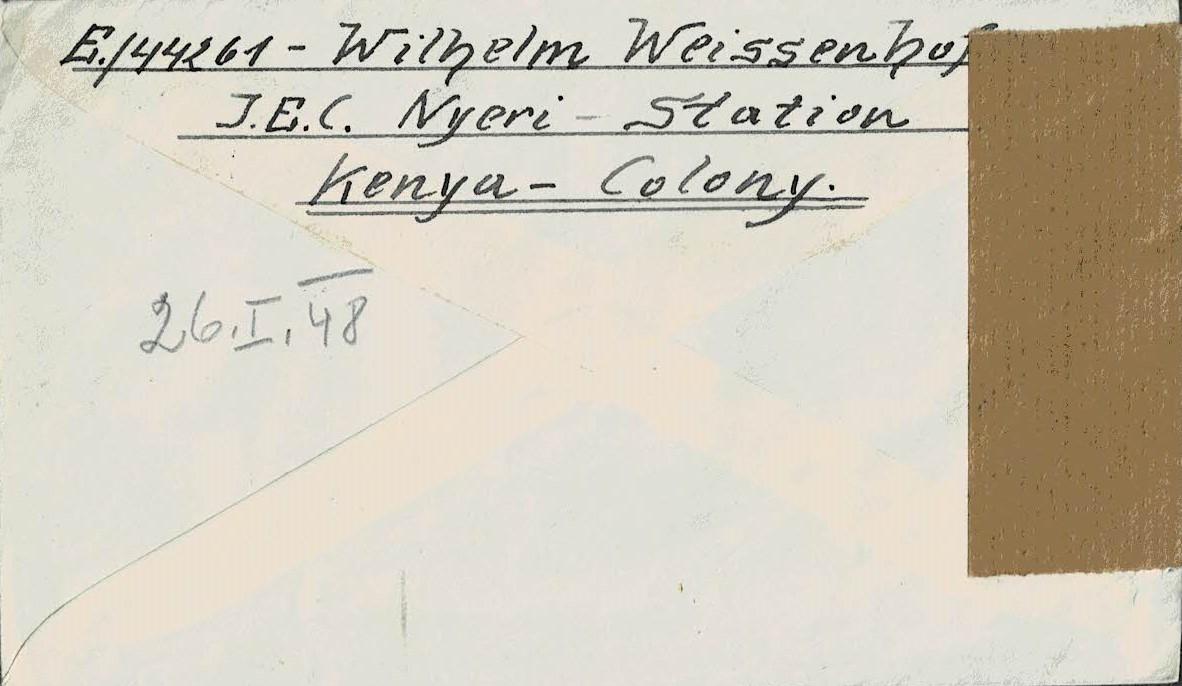 E./44261 - Wilhelm Weissenhof
J.E.C. Nyeri - Station
Kenya - Colony.
26.I.48